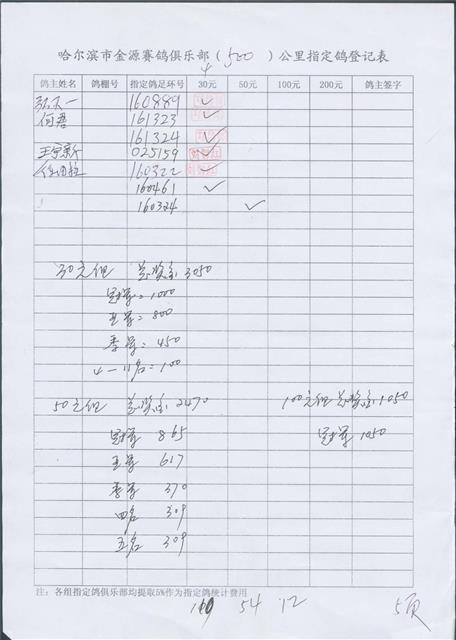 哈尔滨市金源赛鸽俱乐部（500）公里指定鸽登记表
鸽主姓名 鸽棚号 指定鸽足环号 30元 50元 100元 200元 鸽主签字
160889 ✓
何君 161323 ✓
161324 ✓
王宇新 025159 ✓
160322 ✓
160461 ✓
160324 ✓
30元组 总奖金3050
冠军=1000
亚军=800
季军=450
4—11名=100
50元组 总奖金2470 100元组 总奖金1050
冠军 865 冠军 1050
亚军 617
季军 370
四名 309
五名 309
注：各组指定鸽俱乐部均提取5%作为指定鸽统计费用
54 12 5页